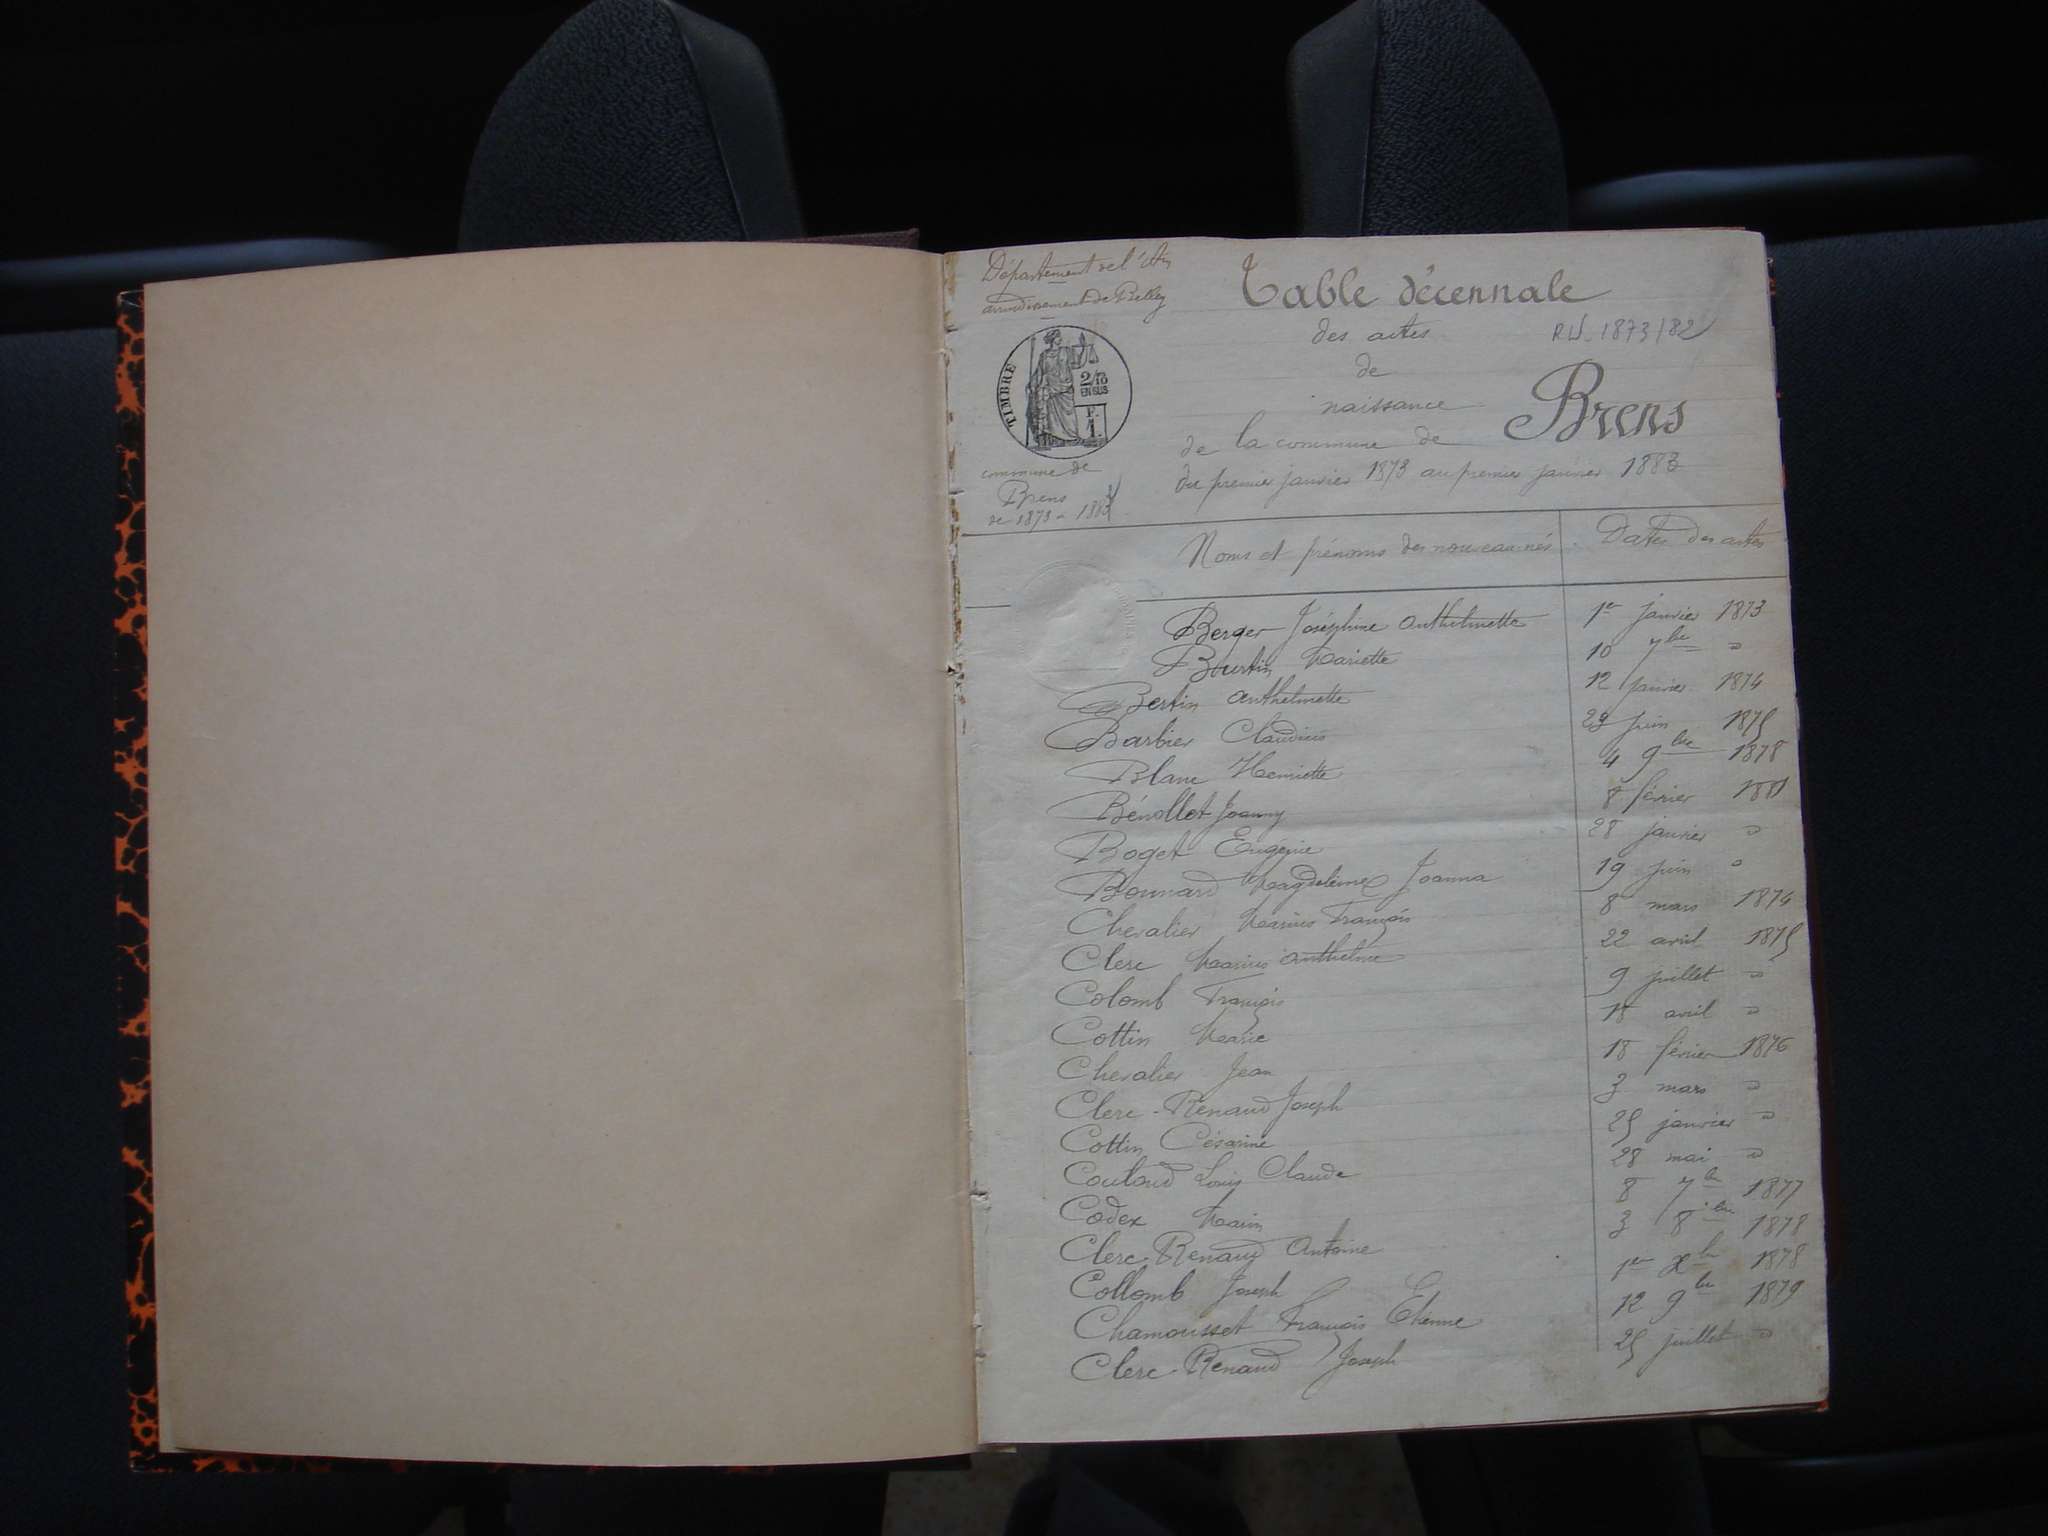 Département de l'Ain
arrondissement de Belley
Table décennale
des actes
RW_1873/82
de
naissance
Brens
de la commune de
du premier janvier 1873 au premier janvier 1883
TIMBRE
2/10
EN SUS
F.
1.
commune de
Brens
de 1873 à 1883
Noms et prénoms des nouveau-nés Dates des actes
Berger Joséphine Anthelmette 1er janvier 1873
Bourtin Mariette 10 7bre "
Bertin Anthelmette 12 janvier 1874
Barbier Claudius 29 juin 1875
Blanc Henriette 4 9bre 1878
Bénollet Joanny 8 février 1881
Boget Eugénie 28 janvier "
Bonnard Magdeleine Joanna 19 juin "
Chevalier Marius François 8 mars 1874
Clerc Marius Anthelme 22 avril 1875
Colomb François 9 juillet "
Cottin Marie 18 avril "
Chevalier Jean 18 février 1876
Clerc-Renaud Joseph 3 mars "
Cottin Césarine 25 janvier "
Couloud Louis Claude 28 mai "
Codex Marin 8 7bre 1877
Clerc-Renaud Antoine 3 8bre 1878
Collomb Joseph 1er Xbre 1878
Chamousset François Etienne 12 9bre 1879
Clerc-Renaud Joseph 25 juillet "